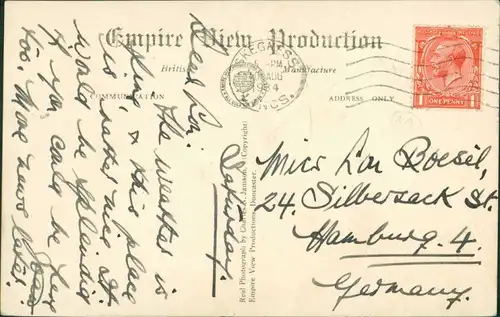 Empire View Production
British Manufacture
COMMUNICATION
ADDRESS ONLY
SKEGNESS
PM
AUG
LINCS.
POSTAGE
ONE PENNY
Saturday.
Dear Lor.
The weather is
fine & this place
is rather nice. It
would be splendid
if you could be here
too. More news later.
Real Photograph by Charles R. Janson (Copyright)
Empire View Productions, Doncaster.
Miss Lor Boesel,
24. Silbersack St.
Hamburg. 4.
Germany.